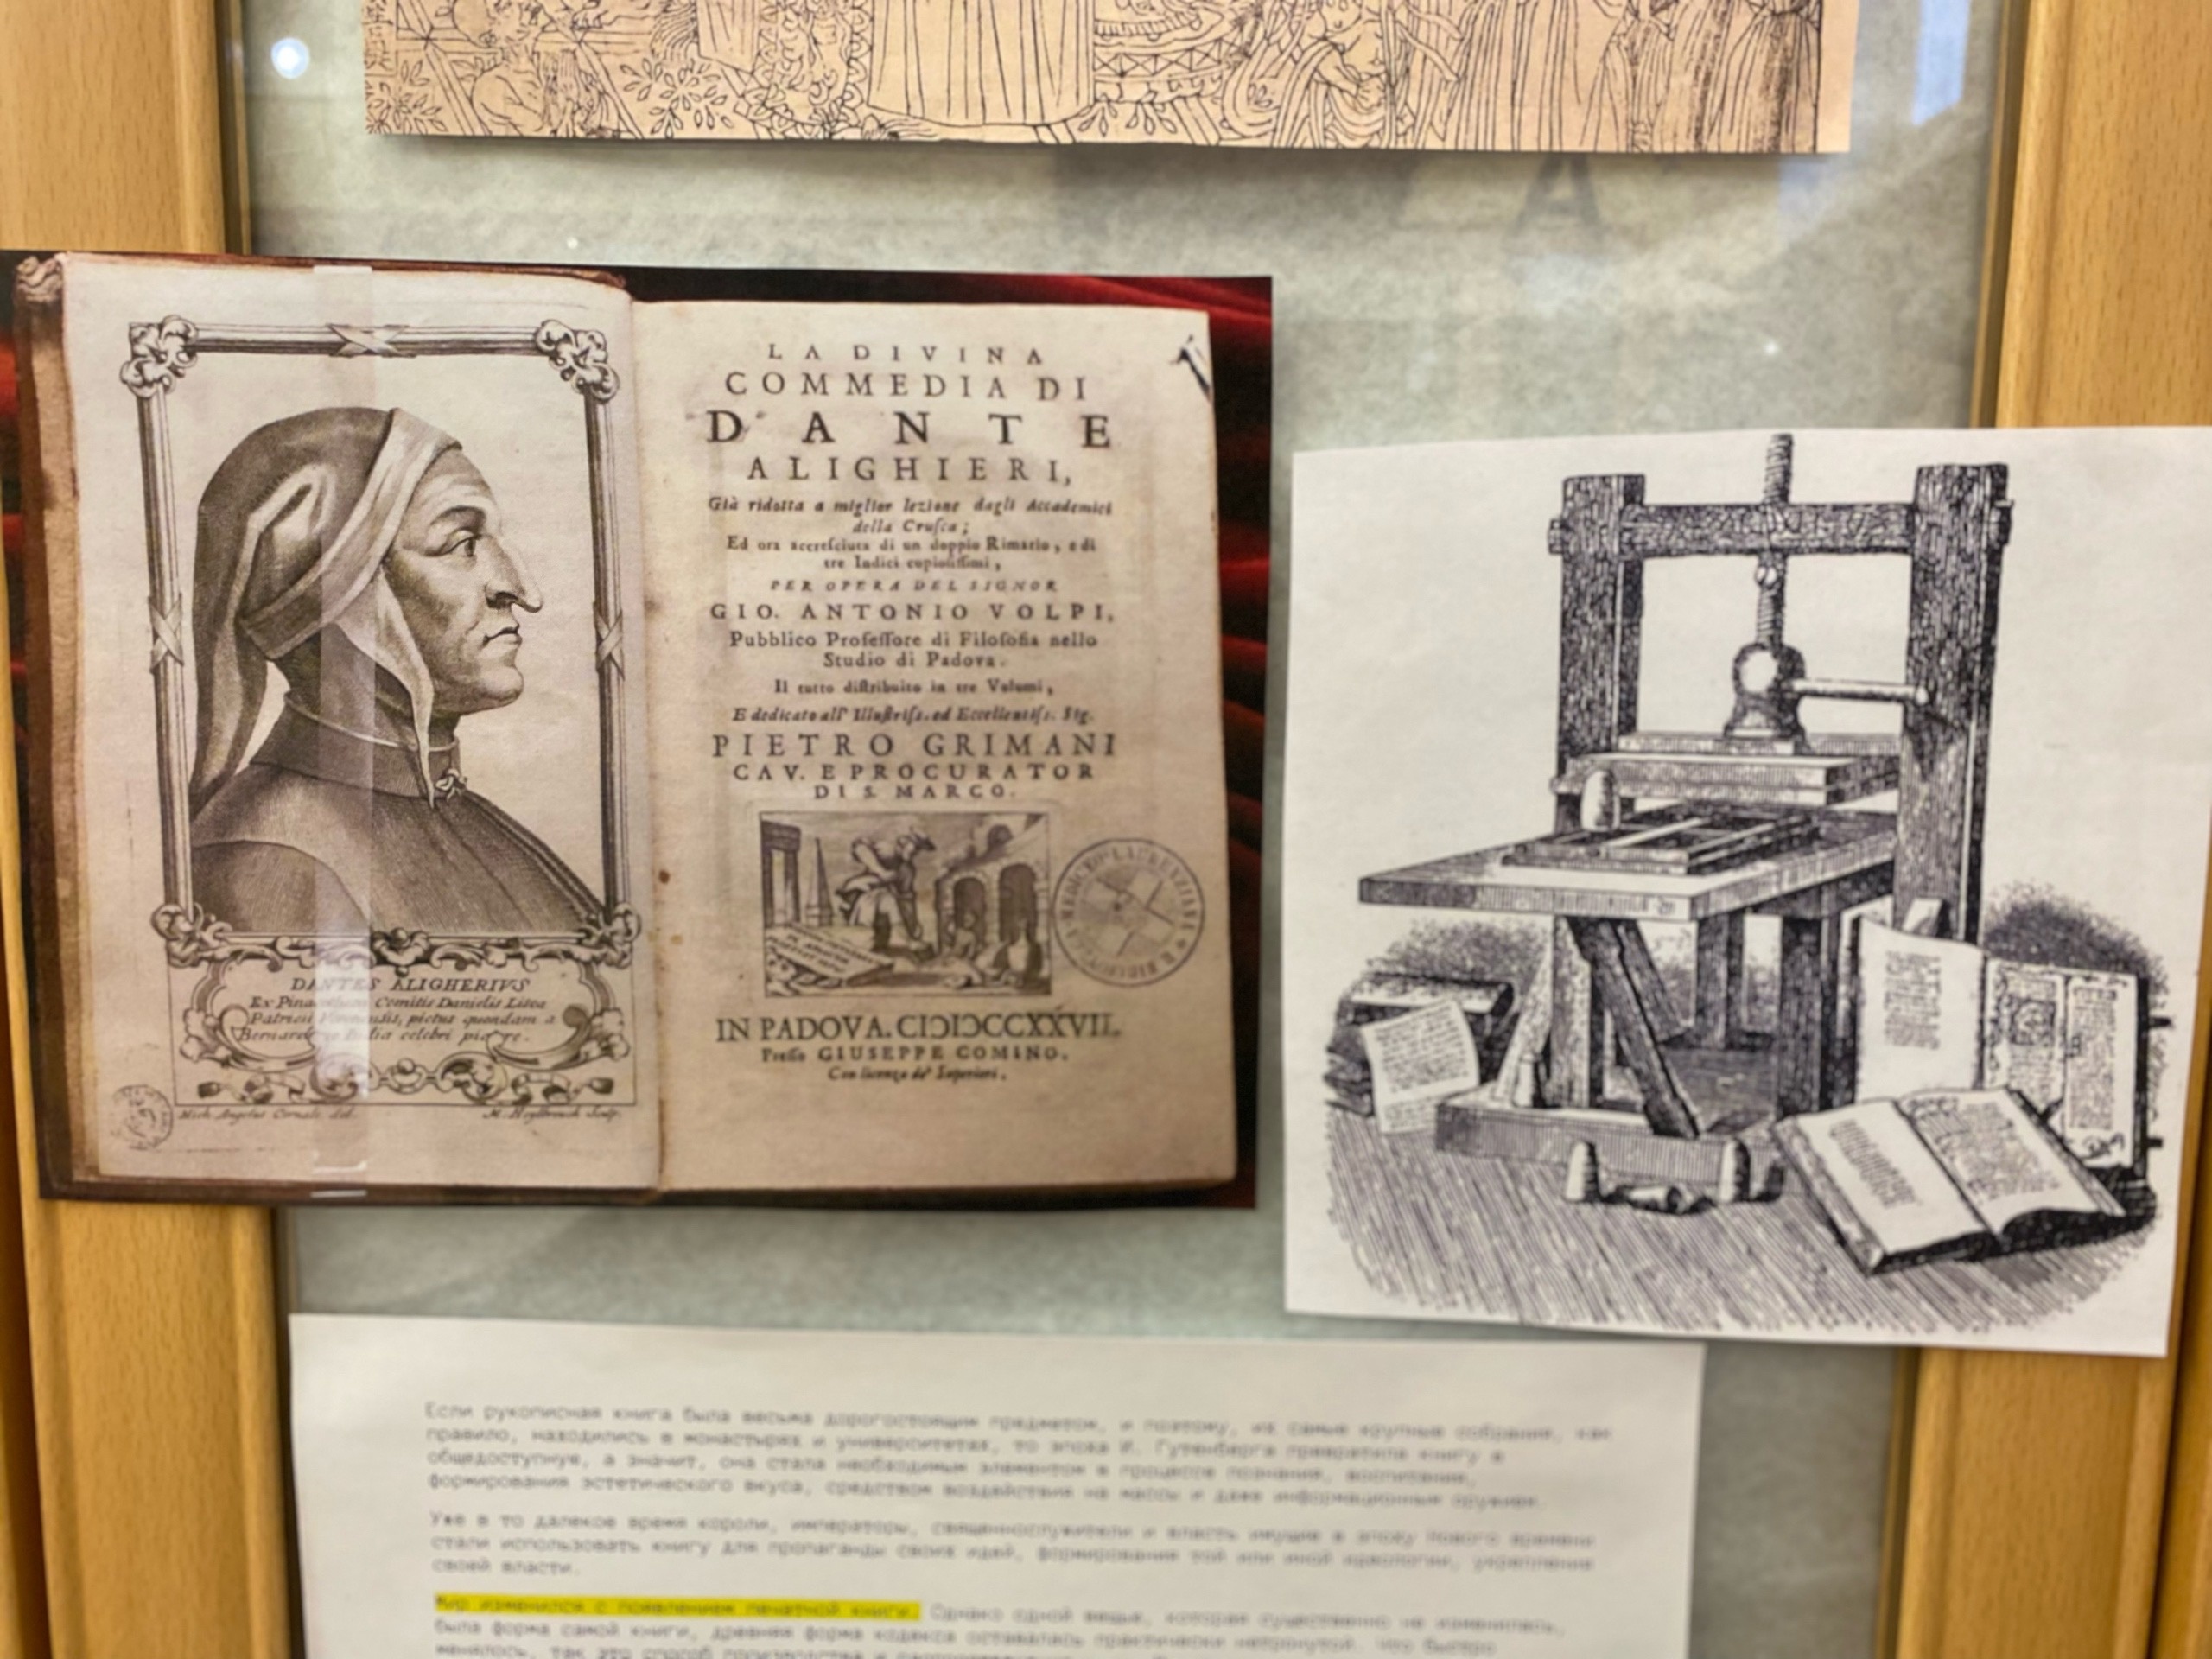 LA DIVINA
COMMEDIA DI
DANTE
ALIGHIERI,
Già ridotta a miglior lezione dagli Accademici
della Cruſca;
Ed ora accreſciuta di un doppio Rimario, e di
tre Indici copioſiſſimi,
PER OPERA DEL SIGNOR
GIO. ANTONIO VOLPI,
Pubblico Profeſſore di Filoſofia nello
Studio di Padova.
Il tutto diſtribuito in tre Volumi,
E dedicato all' Illuſtriſs. ed Eccellentiſs. Sig.
PIETRO GRIMANI
CAV. E PROCURATOR
DI S. MARCO.
IN PADOVA. CIƆIƆCCXXVII.
Preſſo GIUSEPPE COMINO.
Con licenza de' Superiori.
DANTES ALIGHERIVS
Ex Comitis Danielis
Patricii pictus quondam a
celebri pictore.
Mich. Angelus Cornale del.
M. Heylbrouck Sculp.
Если рукописная книга была весьма дорогостоящим предметом, и поэтому, их самые крупные собрания, как
правило, находились в монастырях и университетах, то эпоха И. Гутенберга превратила книгу в
общедоступную, а значит, она стала необходимым элементом в процессе познания, воспитания,
формирования эстетического вкуса, средством воздействия на массы и даже информационным оружием.
Уже в то далекое время короли, императоры, священнослужители и власть имущие в эпоху Нового времени
стали использовать книгу для пропаганды своих идей, формирования той или иной идеологии, укрепления
своей власти.
Мир изменился с появлением печатной книги. Однако одной вещью, которая существенно не изменилась,
была форма самой книги, древняя форма кодекса оставалась практически нетронутой. Что быстро
менялось, так это способ производства и